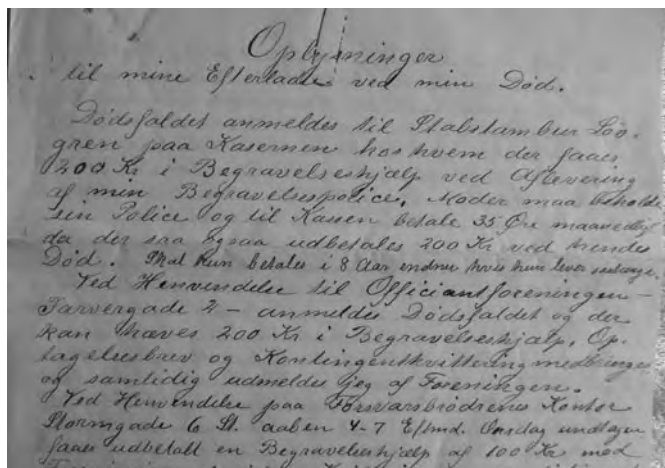 Oplysninger
til mine Efterladte ved min Død.
Dødsfaldet anmeldes til Stabstambur Löv-
gren paa Kasernen hos hvem der faaes
200 Kr i Begravelseshjælp ved Aflevering
af min Begravelsespolice. Moder maa beholde
sin Police og til Kassen betale 35 Øre maanedlig
da der saa ogsaa udbetales 200 Kr ved hendes
Død. Skal kun betales i 8 Aar endnu hvis hun lever saalænge.
Ved Henvendelse til Officiantforeningen -
Farvergade 2 - anmeldes Dødsfaldet og der
kan hæves 200 Kr i Begravelseshjælp. Op-
tagelsesbrev og Kontingentkvittering medbringes
og samtidig udmeldes jeg af Foreningen.
Ved Henvendelse paa Forsvarsbrødrenes Kontor
Stormgade 6 St. aaben 4-7 Eftmd. Onsdag undtagen
faaes udbetalt en Begravelseshjælp af 100 Kr mod